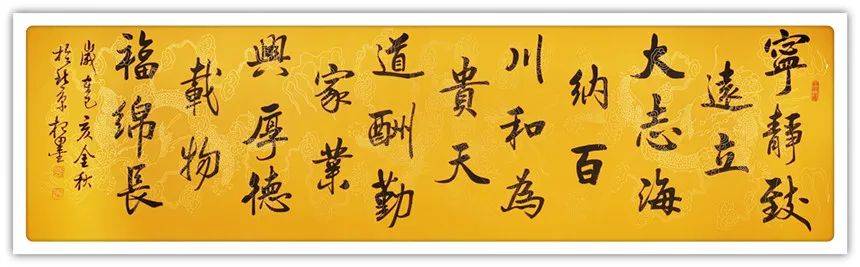 寧靜致
遠立
大志海
納百
川和為
貴天
道酬勤
家業
興厚德
載物
福綿長
歲在己亥金秋
於京墨